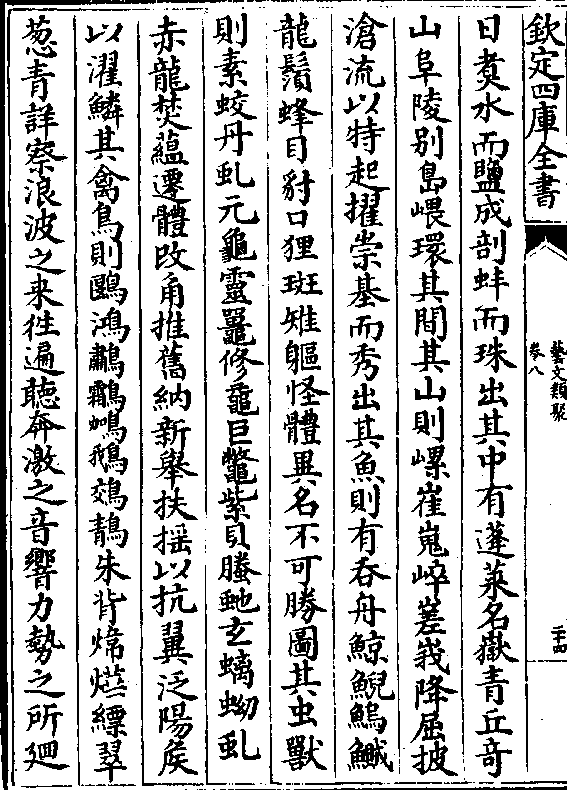 欽定四庫全書
藝文類聚
卷八
二十四
日煑水而鹽成剖蚌而珠出其中有蓬萊名嶽青丘竒
山阜陵别島嵔環其間其山則嵺崔嵬崪嵳峩降屈披
滄流以特起擢崇基而秀出其魚則有吞舟鯨鯢鰞鱡
龍鬚蜂目豺口狸斑雉軀怪體異名不可勝圖其虫獸
則素蛟丹虬元龜靈鼉修黿巨鼈紫貝螣虵玄螭蚴虬
赤龍焚蘊遷體改角推舊納新舉扶揺以抗翼泛陽矦
以濯鱗其禽鳥則鷗鴻鸘鴐鵝䴔鶄朱背煒㷸縹翠
葱青詳察浪波之来徃遍聽奔激之音響力勢之所廻